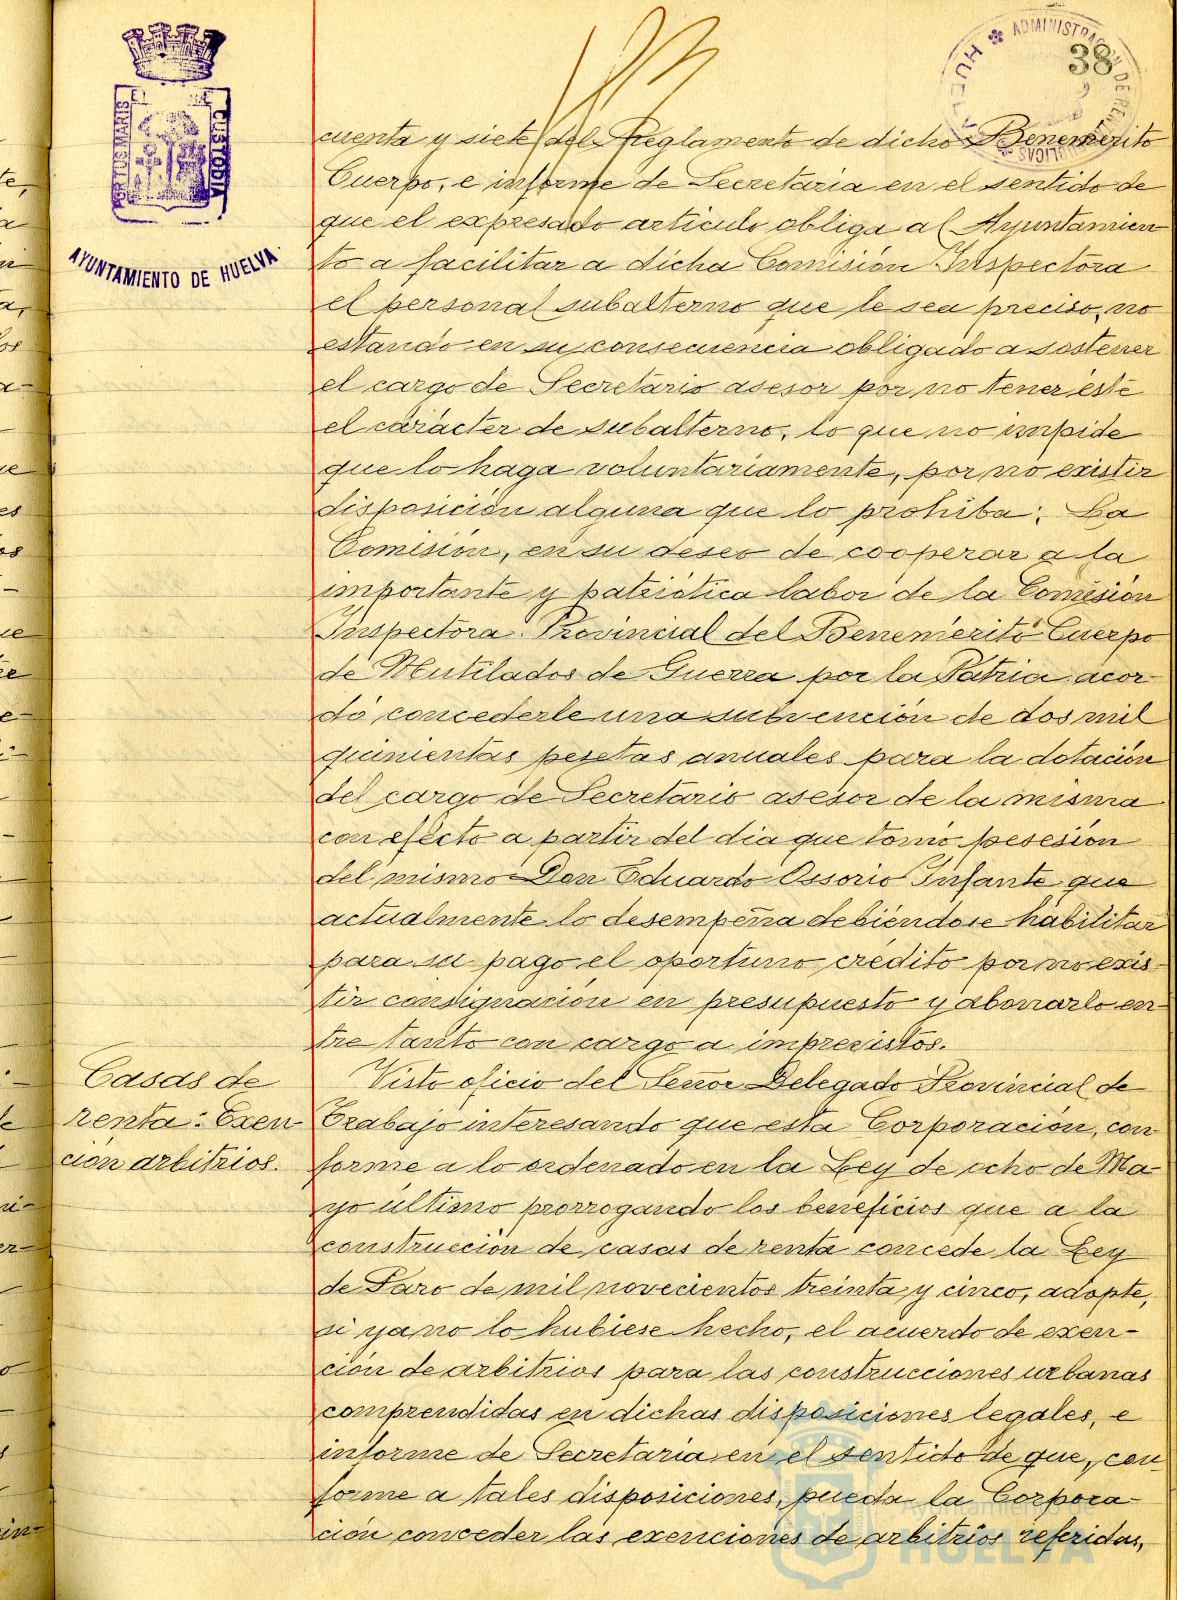 38
ADMINISTRACIÓN DE RENTAS PÚBLICAS
HUELVA
PORTUS MARIS ET TERRAE CUSTODIA
AYUNTAMIENTO DE HUELVA
cuenta y siete del Reglamento de dicho Benemérito
Cuerpo, e informe de Secretaría en el sentido de
que el expresado artículo obliga al Ayuntamien
to a facilitar a dicha Comisión Inspectora
el personal subalterno que le sea preciso, no
estando en su consecuencia obligado a sostener
el cargo de Secretario asesor por no tener éste
el carácter de subalterno, lo que no impide
que lo haga voluntariamente, por no existir
disposición alguna que lo prohiba; La
Comisión, en su deseo de cooperar a la
importante y patriótica labor de la Comisión
Inspectora Provincial del Benemérito Cuerpo
de Mutilados de Guerra por la Patria acor-
dó concederle una subvención de dos mil
quinientas pesetas anuales para la dotación
del cargo de Secretario asesor de la misma
con efecto a partir del día que tomó pesesión
del mismo Don Eduardo Ossorio Infante que
actualmente lo desempeña debiéndose habilitar
para su pago el oportuno crédito por no exis-
tir consignación en presupuesto y abonarlo en-
tre tanto con cargo a imprevistos.
Casas de
renta: Exen-
ción arbitrios.
Visto oficio del Señor Delegado Provincial de
Trabajo interesando que esta Corporación, con
forme a lo ordenado en la Ley de ocho de Ma-
yo último prorrogando los beneficios que a la
construcción de casas de renta concede la Ley
de Paro de mil novecientos treinta y cinco, adopte,
si ya no lo hubiese hecho, el acuerdo de exen-
ción de arbitrios para las construcciones urbanas
comprendidas en dichas disposiciones legales, e
informe de Secretaría en el sentido de que, con
forme a tales disposiciones, pueda la Corpora-
ción conceder las exenciones de arbitrios referidas,
Ayuntamiento de
HUELVA